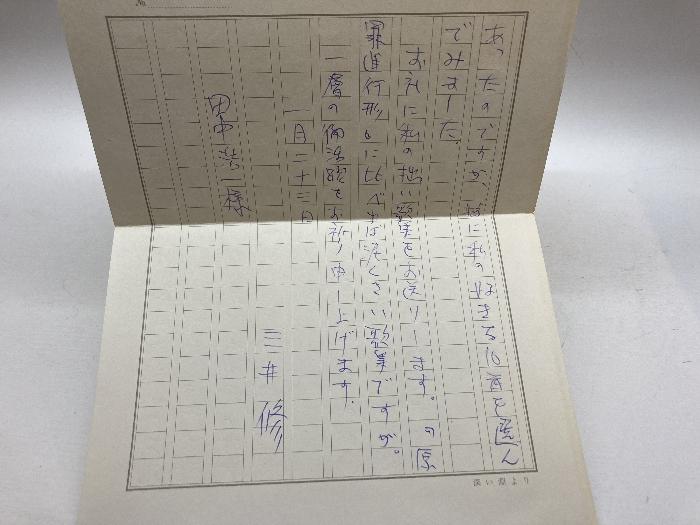 №
あったのですが、特に私の好きな10首を選ん
でみました。
お礼に私の拙い歌集をお送りします。の
進行形に比べれば泥くさい歌集ですが。
一層の御活躍をお祈り申し上げます。
一月二十三日
三井 修
田中 一様
深い淵より